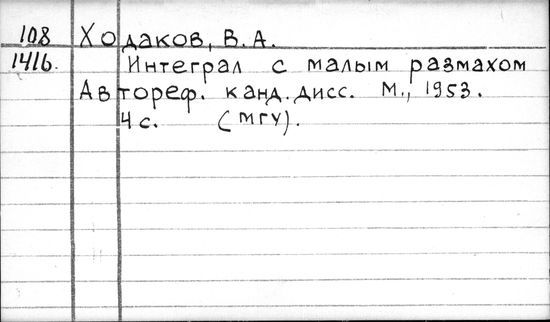 108 Ходаков, В.А.
1416. Интеграл с малым размахом
Автореф. канд. дисс. М., 1953.
4 с. (МГУ).